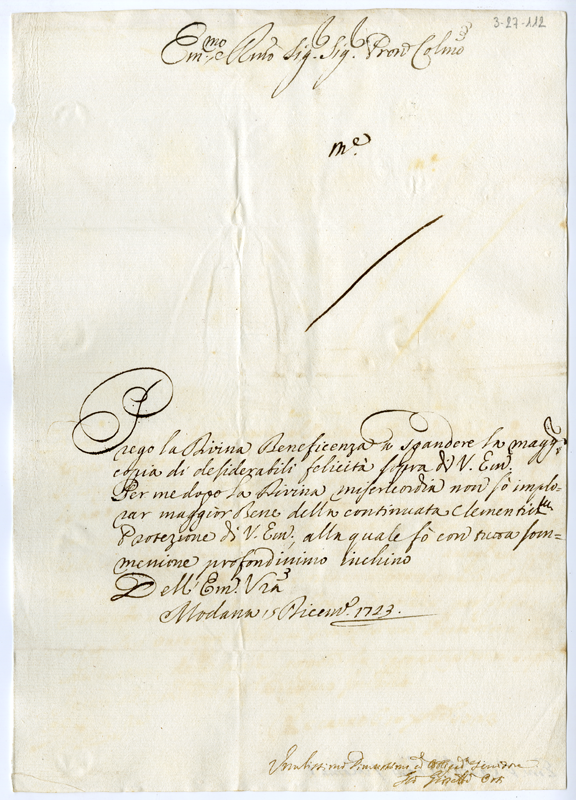 3-27-112
Em.mo e Rmo Sig.r Sig.r Pron Colmo
Prego la Divina Beneficenza a spandere la magg.r
copia di desiderabili felicità sopra di V. Em.
Per me dopo la Divina misericordia non sò implo=
rar maggior Bene della continuata Clementis.ma
Protezione di V. Em. alla quale fò con tutta som=
messione profondissimo inchino
Dell' Em. Vra
Modana 15 Dicem. 1723.